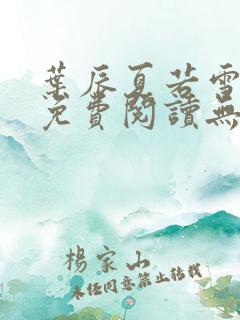 葉辰夏若雪
免費閱讀無
楊家山
未經同意禁止轉載